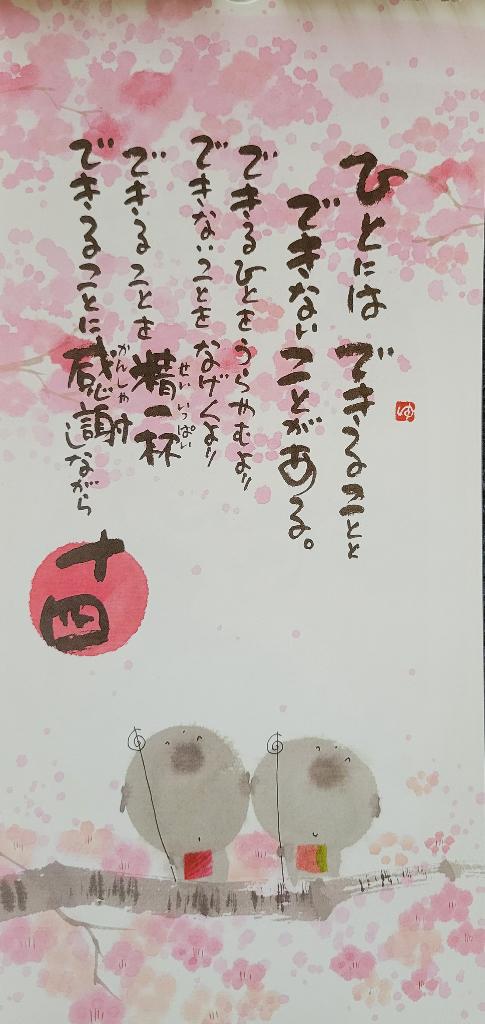 ひとには できることと
できないことがある。
できるひとをうらやむより
できないことをなげくより
できることを精一杯
せい いっぱい
できることに感謝しながら
かんしゃ
十四
ゆ